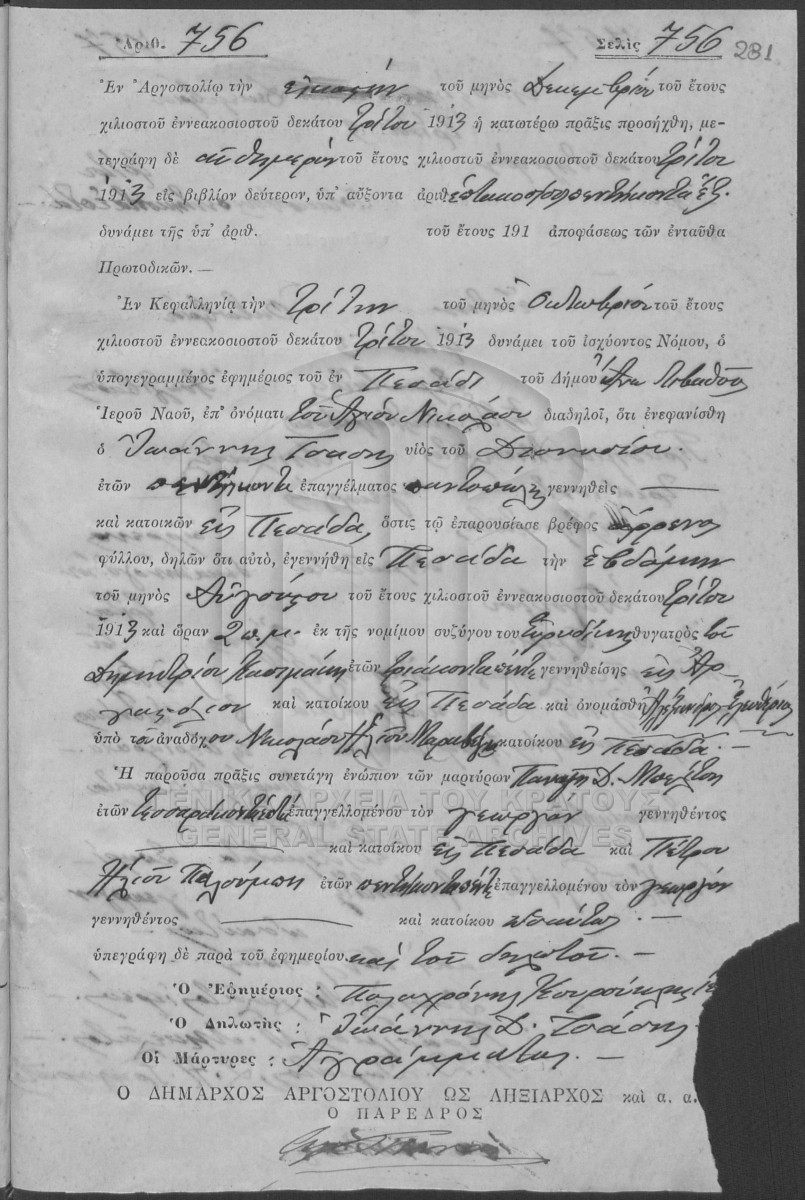 Ἀριθ. 756 Σελὶς 756 231
Ἐν Ἀργοστολίῳ τὴν εἰκοστήν τοῦ μηνὸς Δεκεμβρίου τοῦ ἔτους
χιλιοστοῦ ἐννεακοσιοστοῦ δεκάτου τρίτου 1913 ἡ κατωτέρω πρᾶξις προσήχθη, με-
τεγράφη δὲ αὐθημερὸν τοῦ ἔτους χιλιοστοῦ ἐννεακοσιοστοῦ δεκάτου τρίτου
1913 εἰς βιβλίον δεύτερον, ὑπ' αὔξοντα ἀριθ. ἑπτακόσια πεντήκοντα ἕξ.
δυνάμει τῆς ὑπ' ἀριθ. τοῦ ἔτους 191 ἀποφάσεως τῶν ἐνταῦθα
Πρωτοδικῶν. —
Ἐν Κεφαλληνίᾳ τὴν τρίτην τοῦ μηνὸς Ὀκτωβρίου τοῦ ἔτους
χιλιοστοῦ ἐννεακοσιοστοῦ δεκάτου τρίτου 1913 δυνάμει τοῦ ἰσχύοντος Νόμου, ὁ
ὑπογεγραμμένος ἐφημέριος τοῦ ἐν Πεσάδι τοῦ Δήμου Ἄνω Λειβαθοῦς
Ἱεροῦ Ναοῦ, ἐπ' ὀνόματι τοῦ Ἁγίου Νικολάου διαδηλοῖ, ὅτι ἐνεφανίσθη
ὁ Ἰωάννης Τσάσης υἱὸς τοῦ Διονυσίου.
ἐτῶν πεντήκοντα ἐπαγγέλματος παντοπώλης γεννηθεὶς —
καὶ κατοικῶν εἰς Πεσάδα, ὅστις τῷ ἐπαρουσίασε βρέφος ἄρρενος
φύλλου, δηλῶν ὅτι αὐτὸ, ἐγεννήθη εἰς Πεσάδα τὴν ἑβδόμην
τοῦ μηνὸς Αὐγούστου τοῦ ἔτους χιλιοστοῦ ἐννεακοσιοστοῦ δεκάτου τρίτου
1913 καὶ ὥραν 2 π.μ. ἐκ τῆς νομίμου συζύγου του Εὐρυδίκης θυγατρὸς τοῦ
Δημητρίου ἐτῶν τριάκοντα πέντε γεννηθείσης εἰς Ἀρ-
γοστόλιον καὶ κατοίκου εἰς Πεσάδα καὶ ὀνομάσθη Ἀλέξανδρος Ἐλευθέριος
ὑπὸ τοῦ ἀναδόχου Νικολάου Ἠλίου κατοίκου εἰς Πεσάδα. —
Ἡ παροῦσα πρᾶξις συνετάγη ἐνώπιον τῶν μαρτύρων Παναγῆ Δ.
ἐτῶν ἐπαγγελλομένου τὸν γεωργὸν γεννηθέντος
— καὶ κατοίκου εἰς Πεσάδα καὶ Πέτρου
Ἠλίου Παλούμπη ἐτῶν πεντήκοντα πέντε ἐπαγγελλομένου τὸν γεωργὸν
γεννηθέντος — καὶ κατοίκου ὡσαύτως. —
ὑπεγράφη δὲ παρὰ τοῦ ἐφημερίου καὶ τοῦ δηλωτοῦ. —
Ὁ Ἐφημέριος : Πολυχρόνης
Ὁ Δηλωτὴς : Ἰωάννης Δ. Τσάσης
Οἱ Μάρτυρες : Ἀγράμματοι. —
Ο ΔΗΜΑΡΧΟΣ ΑΡΓΟΣΤΟΛΙΟΥ ΩΣ ΛΗΞΙΑΡΧΟΣ καὶ α. α.
Ο ΠΑΡΕΔΡΟΣ
ΓΕΝΙΚΑ ΑΡΧΕΙΑ ΤΟΥ ΚΡΑΤΟΥΣ
GENERAL STATE ARCHIVES